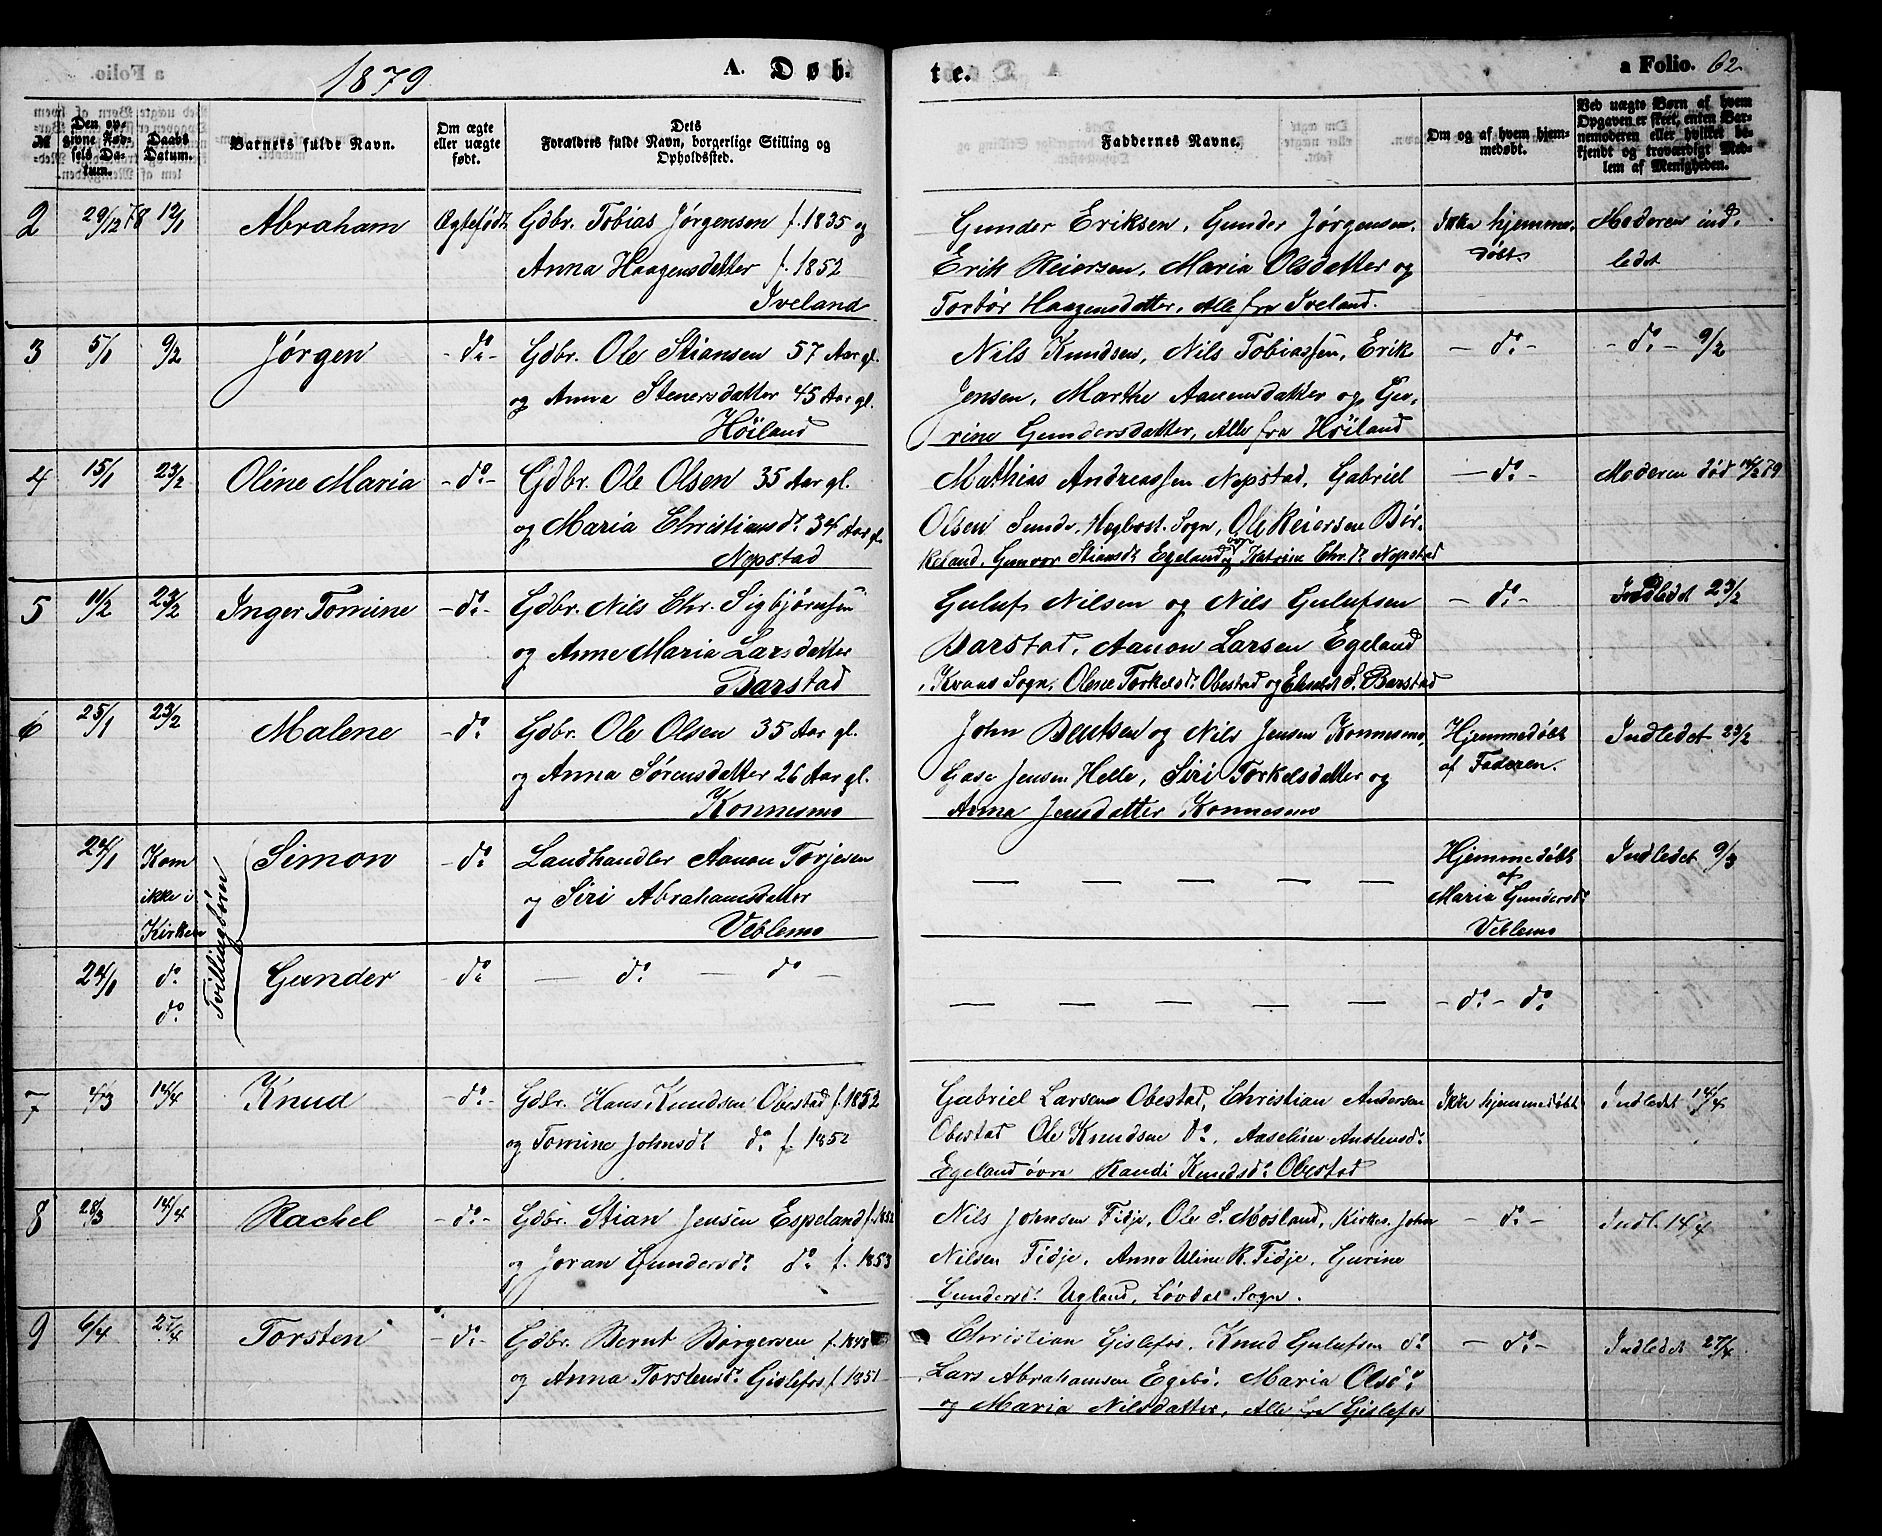 1879
A. D ø b.
t e.
a Folio. 62.
№
Den op-
givne Fød-
sels Da-
tum.
Daabs
Datum.
Barnets fulde Navn.
Om ægte
eller uægte
født.
Dets
Forældres fulde Navn, borgerlige Stilling og
Opholdssted.
Faddernes Navne.
Om og af hvem hjem-
medøbt.
Ved uægte Børn af hvem
Opgaven er skeet, enten Bar-
nemoderen eller hvilket be-
kjendt og troværdigt Med-
lem af Menigheden.
2 29/12 78 12/1 Abraham Ægtefødt Gdbr. Tobias Jørgensen f. 1835 og
Anna Haagensdatter f. 1852
Iveland
Gunder Eriksen, Gunder Jørgensen,
Erik Reiersen, Maria Olsdatter og
Torbør Haagensdatter, Alle fra Iveland.
Ikke hjemme-
døbt
Moderen ind-
ledet
3 5/1 9/2 Jørgen - do - Gdbr. Ole Stiansen 57 Aar gl.
og Anna Stenersdatter 45 Aar gl.
Høiland
Nils Knudsen, Nils Tobiassen, Erik
Jensen, Marthe Aanensdatter og Gu-
rine Gundersdatter, Alle fra Høiland
- do -
- do - 9/2
4 15/1 23/2 Oline Maria - do - Gdbr. Ole Olsen 35 Aar gl.
og Maria Christiansdr 34 Aar gl.
Nepstad
Mathias Andreassen Nepstad, Gabriel
Olsen Sunde, Hegbost. Sogn, Ole Reiersen Bir-
keland, Gunvor Stiansdr Egeland øvr og Katrine Chr. dr Nepstad
- do -
Moderen død 14/2 79
5 11/2 23/2 Inger Tomine - do - Gdbr. Nils Chr. Sigbjørnsen
og Anne Maria Larsdatter
Barstad
Guluf Nilsen og Nils Gulufsen
Barstad, Aanon Larsen Egeland
Kvaas Sogn, Olene Torkelsdr Obestad og S. Barstad
- do -
Indledet 23/2
6 25/1 23/2 Malene - do Gdbr. Ole Olsen 35 Aar gl.
og Anna Sørensdatter 26 Aar gl.
Konnesmo
John Bentsen og Nils Jensen Konnesmo,
Aase Jensen Helle, Siri Torkelsdatter og
Anna Jensdatter Konnesmo
Hjemmedøbt
af Faderen.
Indledet 23/2
Tvillingbørn
24/1 Kom
ikke i
Kirken
Simon - do Landhandler Aanon Torjesen
og Siri Abrahamsdatter
Veblemo
— — — — — —
Hjemmedøbt
af
Maria Gundersdr
Veblemo
Indledet 9/3
24/1 do
do
Gunder - do — do — do —
— — — — — —
- do - do
7 4/3 14/4 Knud - do - Gdbr. Hans Knudsen Obestad f. 1852
og Tomine Johnsdr do f. 1852
Gabriel Larsen Obestad, Christian Andersen
Obestad Ole Knudsen do, Aaseline Anstensdr
Egeland øvre Randi Knudsdr Obestad
Ikke hjemmedøbt
Indledet 14/4
8 28/3 14/4 Rachel - do - Gdbr. Stian Jensen Espeland f. 1852
og Joran Gundersdr do f. 1853
Nils Johnsen Fidje, Ole S. Mosland, Kirkes. John
Nilsen Fidje, Anne Uline K. Fidje, Gurine
Gundersdr Ugland, Løvdal Sogn.
- do -
Indl. 14/4
9 6/4 27/4 Torsten - do - Gdbr. Bernt Børgersen f. 1848
og Anna Torstensdr Gislefos f. 1851
Christian Gislefos, Knud Gulufsen do
Lars Abrahamsen Egebø, Maria Olsdr
og Maria Nilsdatter, Alle fra Gislefos
- do -
Indledet 27/4